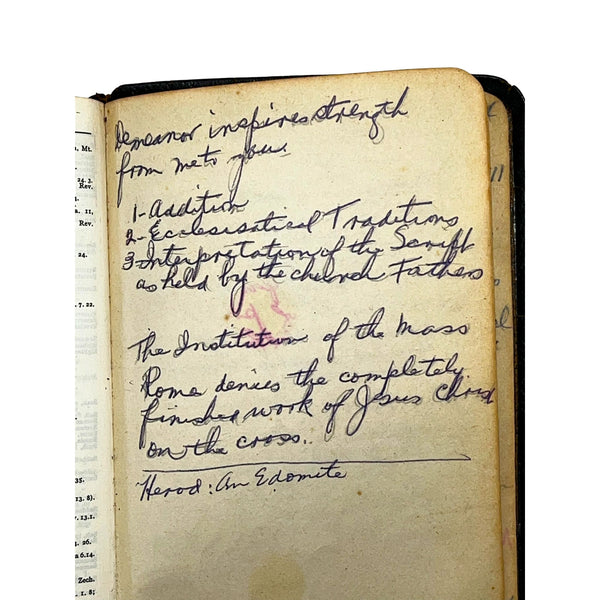 Demeanor inspires strength
from me to you.
1-Addition
2-Ecclesisatical Traditions
3-Interpretation of the Script
as held by the church Fathers
The Institution of the Mass
Rome denies the completely
finished work of Jesus Christ
on the cross.
Herod: An Edomite
Mt.
24. 3.
Rev.
a. 11,
Rev.
24.
7. 22.
35.
13. 8).
v. 13. 1.
4. 26.
a 6. 14.
Zech.
1. 8;